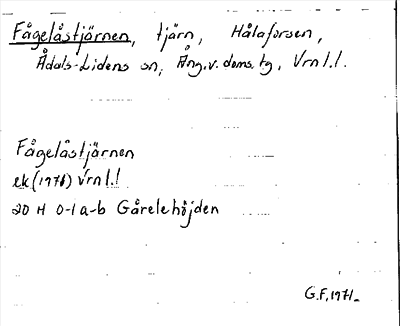 Fågelåstjärnen, tjärn, Hålaforsen,
Ådals-Lidens sn, Ång.v. doms.tg, Vrnl.l.
Fågelåstjärnen
ek (1971) Vrnl.l
20 H 0-1 a-b Gårelehöjden
G.F. 1971.